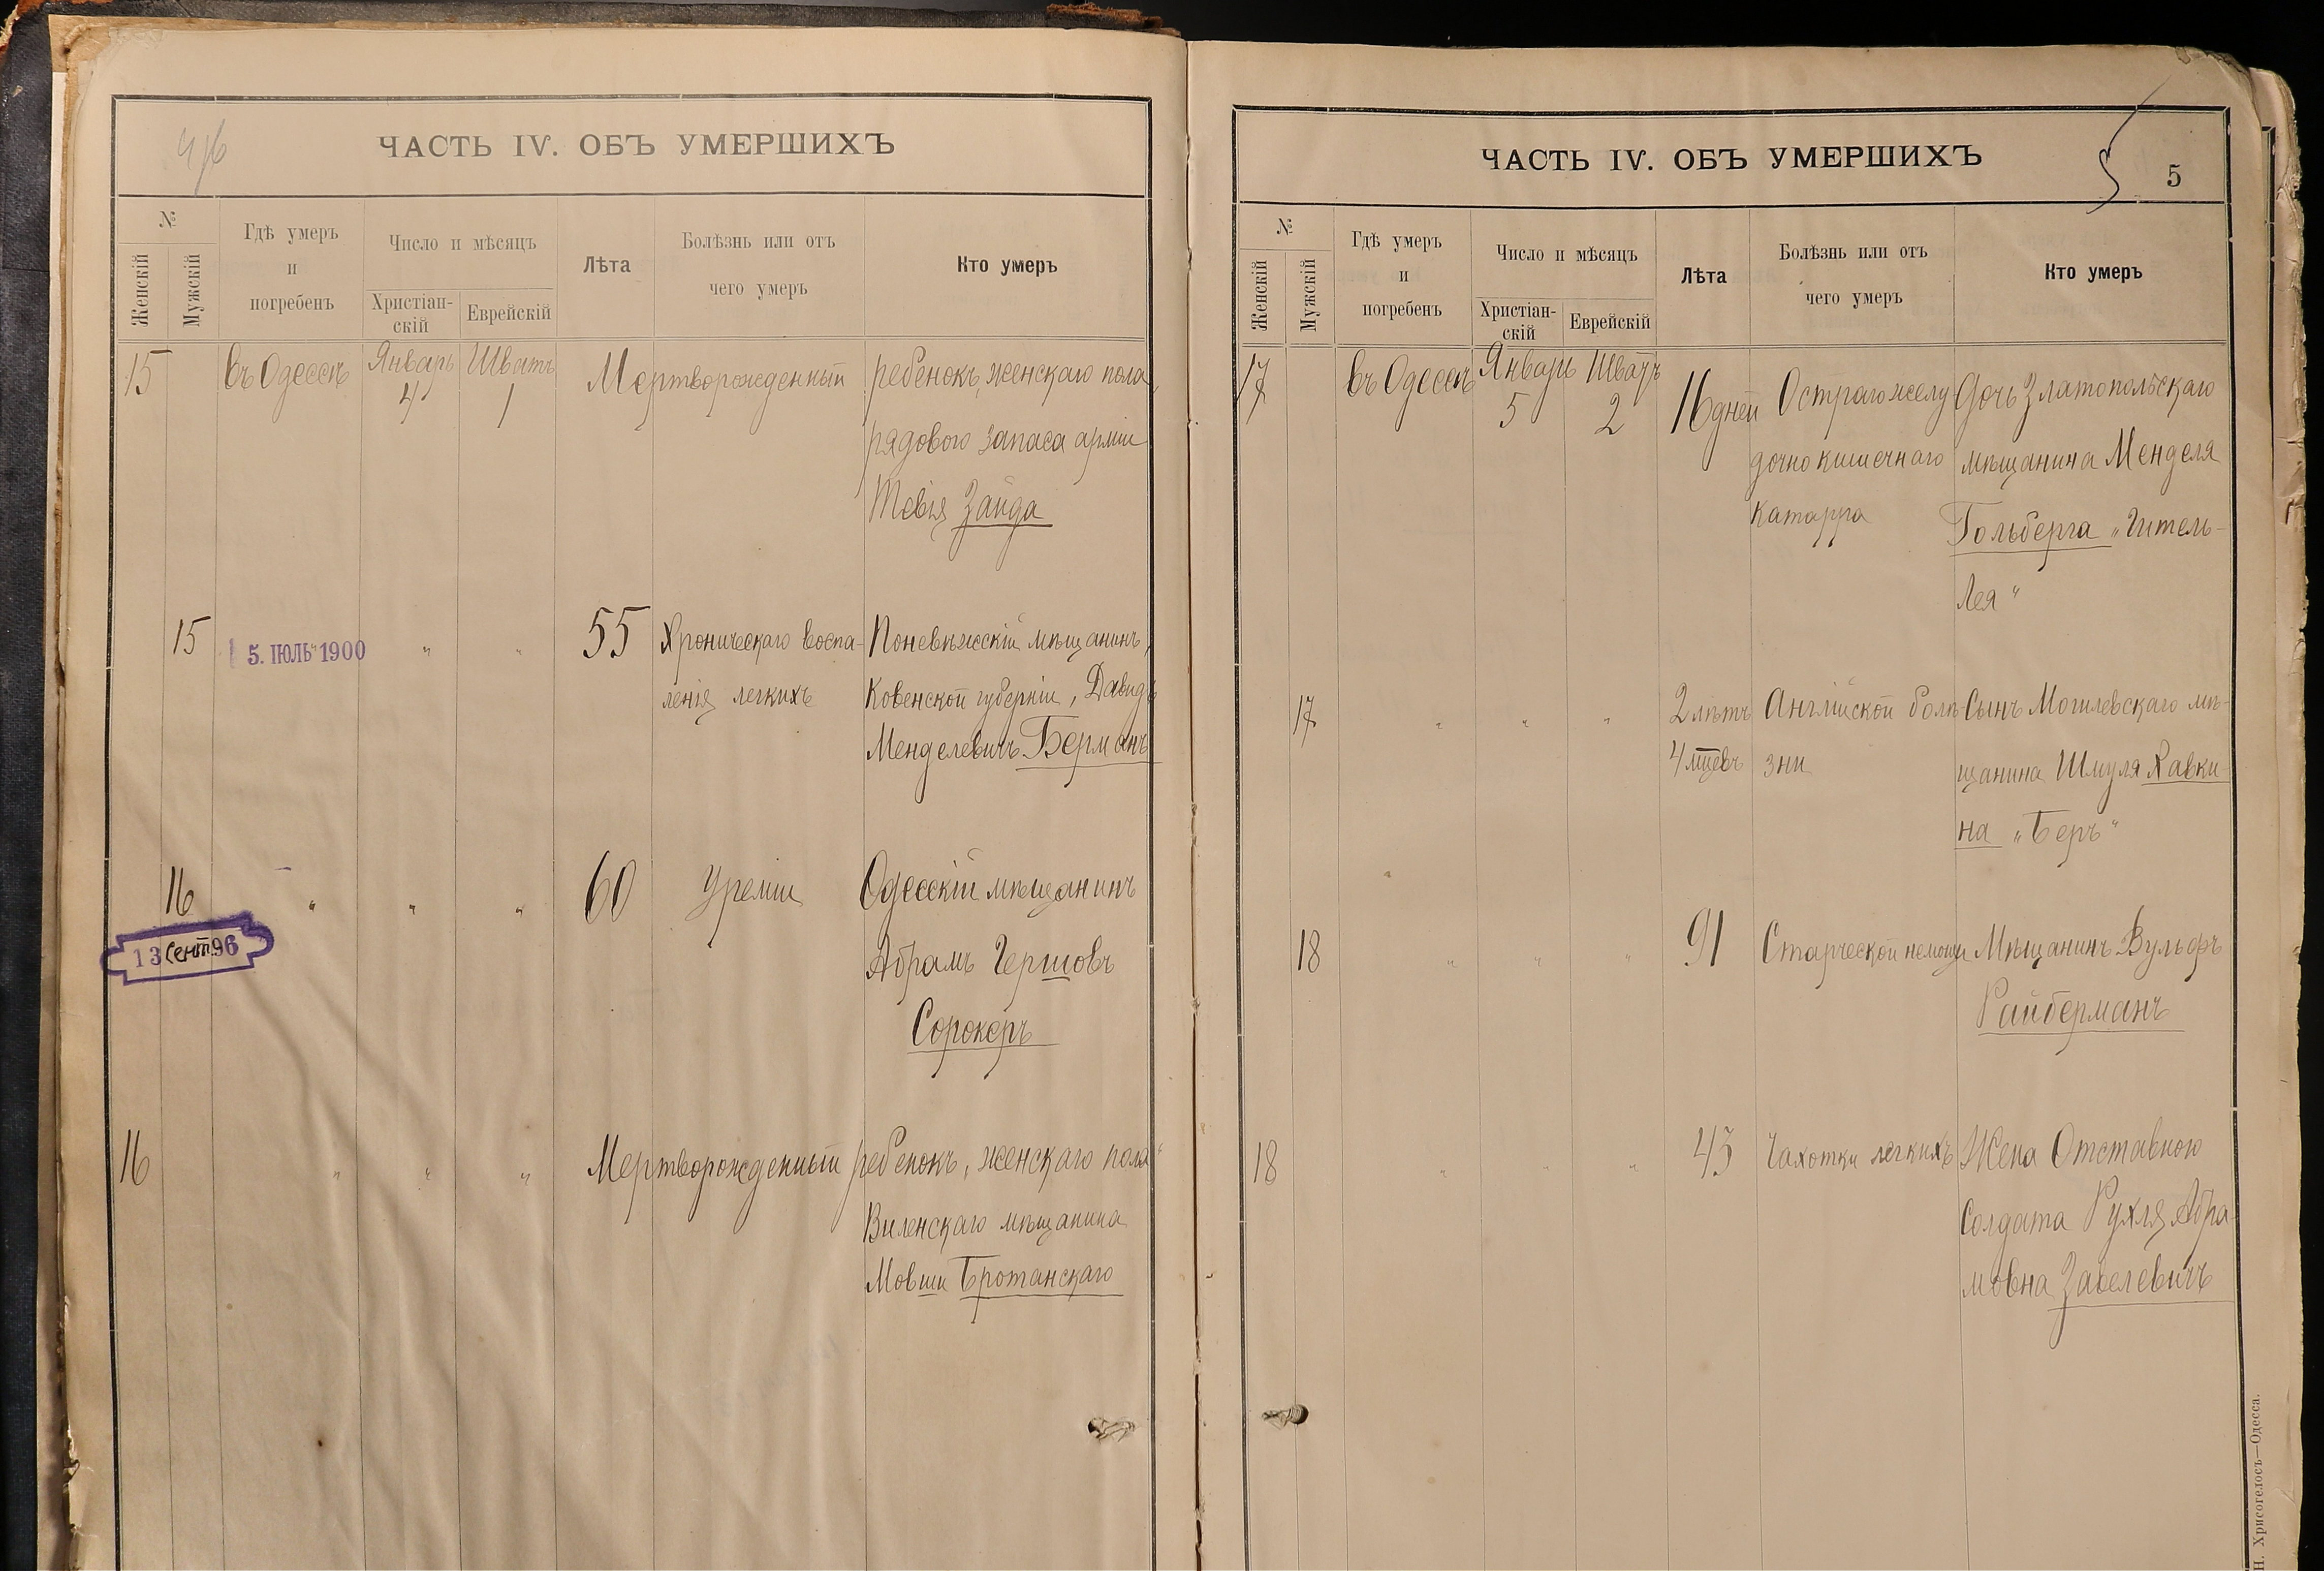 ЧАСТЬ IV. ОБЪ УМЕРШИХЪ
№
Женскій
Мужскій
Гдѣ умеръ
и
погребенъ
Число и мѣсяцъ
Христіан-
скій
Еврейскій
Лѣта
Болѣзнь или отъ
чего умеръ
Кто умеръ
15 въ Одессѣ Январь Шватъ Мертворожденный ребенокъ, женскаго пола,
4 1
рядового запаса арміи
Тевія Зайда
15 5. ІЮЛЬ 1900 " " 55 Хроническаго воспа- Поневѣжскій мѣщанинъ,
ленія легкихъ Ковенской губерніи, Давидъ
Менделевичъ Берманъ
16 " " " 60 Уреміи Одесскій мѣщанинъ
13 Сент 96
Абрамъ Гершовъ
Сорокеръ
16 " " " Мертворожденный ребенокъ, женскаго пола
Виленскаго мѣщанина
Мовши Бротанскаго
ЧАСТЬ IV. ОБЪ УМЕРШИХЪ
5 5
№
Женскій
Мужскій
Гдѣ умеръ
и
погребенъ
Число и мѣсяцъ
Христіан-
скій
Еврейскій
Лѣта
Болѣзнь или отъ
чего умеръ
Кто умеръ
17 въ Одессѣ Январь Шватъ 16 дней Остраго желу- Дочь Златопольскаго
5 2
дочно кишечнаго мѣщанина Менделя
катарра Гольберга „Гитель-
Лея"
17 " " " 2 лѣтъ Англійской болѣ- Сынъ Могилевскаго мѣ-
4 мцевъ зни щанина Шмуля Хавки-
на „Беръ"
18 " " " 91 Старческой немощи Мѣщанинъ Вульфъ
Райберманъ
18 " " " 43 Чахотки легкихъ Жена Отставного
Солдата Рухля Абра-
мовна Заселевичъ
Н. Хрисогелосъ—Одесса.